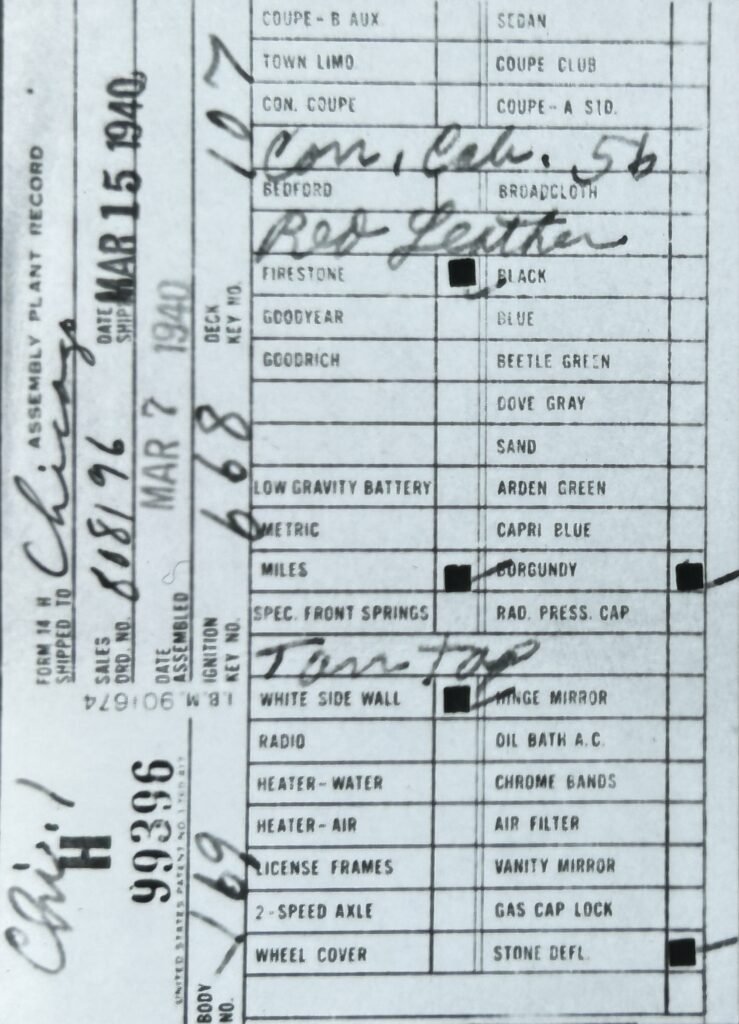 FORM 14 H ASSEMBLY PLANT RECORD
SHIPPED TO Chicago
SALES ORD. NO. 808196
DATE SHIP MAR 15 1940
DATE ASSEMBLED MAR 7 1940
IGNITION KEY NO. 668
DECK KEY NO. 107
I.B.M. 901674
H 99396
UNITED STATES PATENT NO. 1,780,417
BODY NO. 169
COUPE-B AUX. SEDAN
TOWN LIMO COUPE CLUB
CON. COUPE COUPE-A STD.
Con. Cab. 56
BEDFORD BROADCLOTH
Red Leather
FIRESTONE ■ BLACK
GOODYEAR BLUE
GOODRICH BEETLE GREEN
DOVE GRAY
SAND
LOW GRAVITY BATTERY ARDEN GREEN
METRIC CAPRI BLUE
MILES ■ BURGUNDY ■
SPEC. FRONT SPRINGS RAD. PRESS. CAP
Tan Top
WHITE SIDE WALL ■ HINGE MIRROR
RADIO OIL BATH A.C.
HEATER-WATER CHROME BANDS
HEATER-AIR AIR FILTER
LICENSE FRAMES VANITY MIRROR
2-SPEED AXLE GAS CAP LOCK
WHEEL COVER STONE DEFL. ■